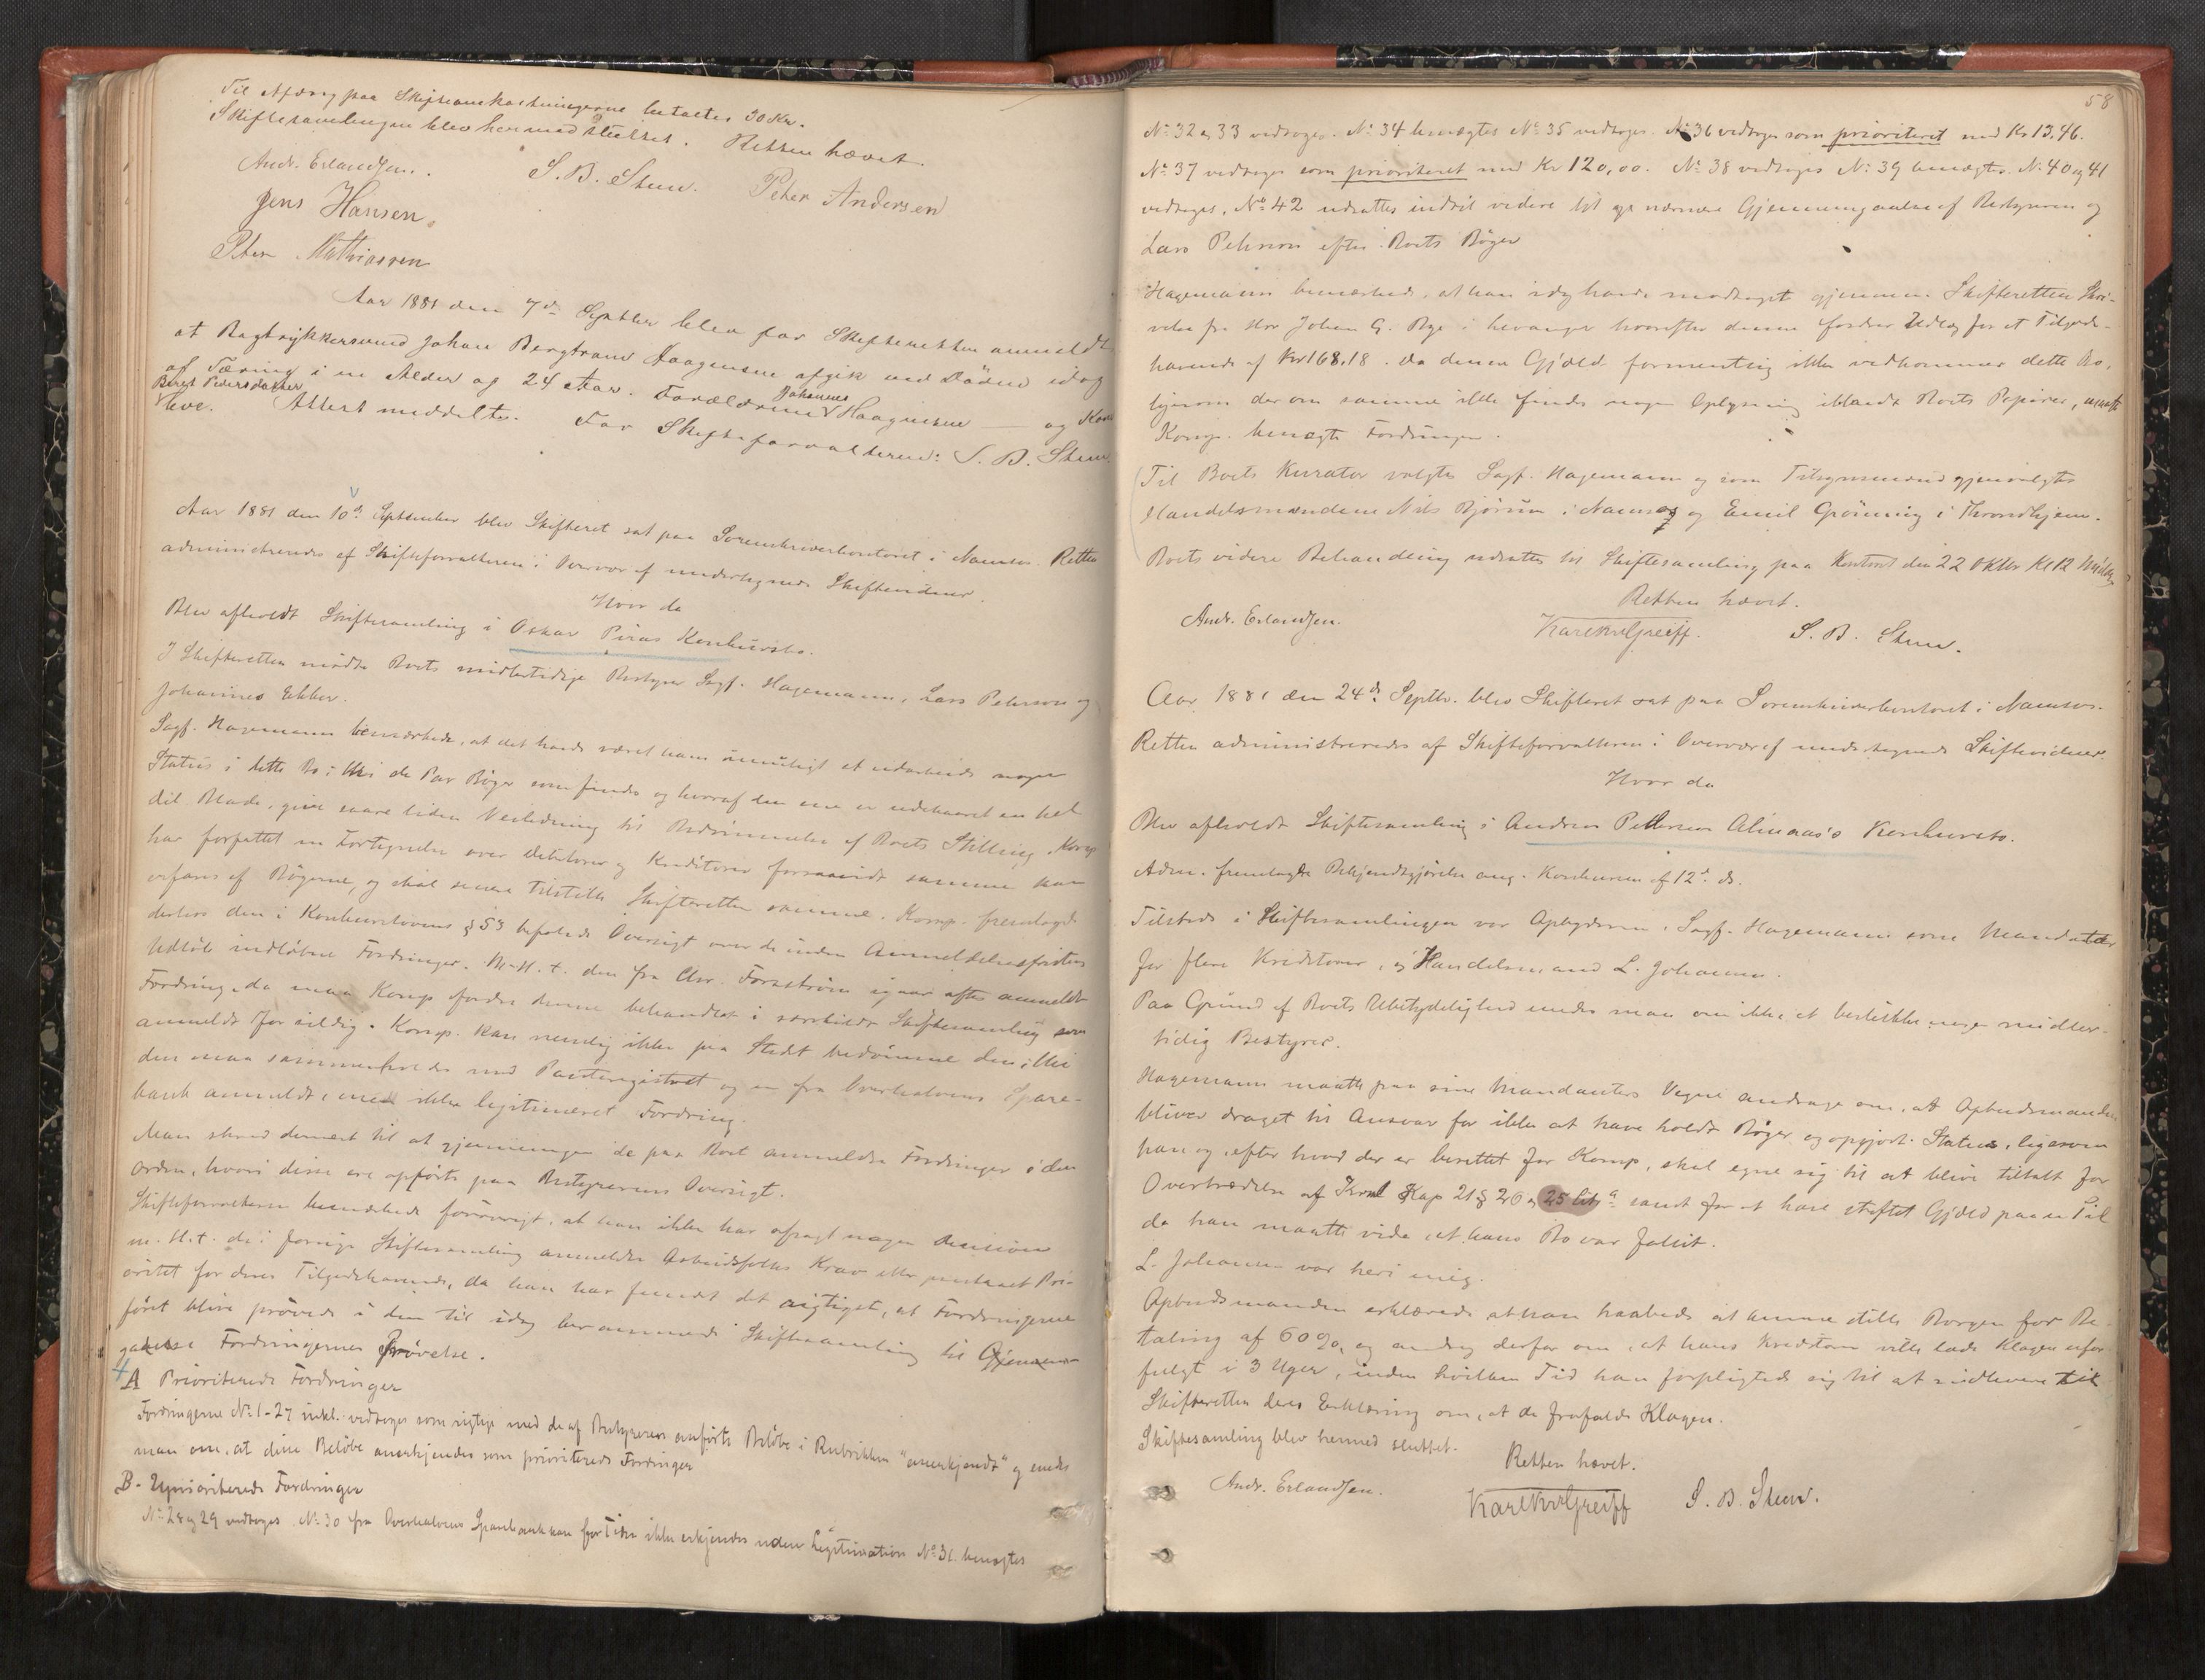 Til Afdrag paa Skifteomkostningerne betaltes 30 Kr.
Skiftesamlingen blev hermed sluttet. Retten hævet.
Andr. Erlandsen. S. B. Stenw. Peter Andersen
Jens Hansen.
Peter Mathiassen
Aar 1881 den 7de Septber blev for Skifteretten anmeldt
at Bogtrykkersvend Johan Bergtraw Haagensen afgik ved Døden idag
af Tæring i en Alder af 24 Aar. Forældrene Johannes Haagensen — og
Beret Pedersdatter
leve. Attest meddeltes. For Skifteforvalteren: S. B. Stenw
Aar 1881 den 10de September blev Skifteret sat paa Sorenskriverkontoret i Namsos. Retten
administreredes af Skifteforvalteren i Overvær af undertegnede Skiftevidner.
Hvor da
Blev afholdt Skiftesamling i Oskar Piras Konkursbo.
I Skifteretten mødte Boets midlertidige Bestyrer Sagf. Hagemann, Lars Peterson og
Johannes Ekker.
Sagf. Hagemann bemærkede, at det havde været ham umuligt at udarbeide nogen
Status i dette Bo; thi de Par Bøger som findes og hvoraf den ene er udskaaret en hel
del Blade, give saare liden Veiledning til Bedømmelse af Boets Stilling. Komp
har forfattet en Fortegnelse over Debitorer og Kreditorer forsaavidt samme kan
erfares af Bøgerne, og skal senere tilstille Skifteretten samme. Komp. fremlagde
derhos den i Konkurslovens § 53 befalede Oversigt over de inden Anmeldelsesfristens
Udløb indløbne Fordringer. M. H. t. den fra Chr. Forstrøm igaar aftes anmeldte
Fordring, da maa Komp fordre denne behandlet i særskildt Skiftesamling som
anmeldt for sildig. Komp. kan nemlig ikke paa Stedet bedømme den; thi
den maa sammenholdes med Panteregistret og en fra Overhalvens Spare-
bank anmeldt, men ikke legitimeret Fordring.
Man skred dernæst til at gjennemgaa de paa Boet anmeldte Fordringer i den
Orden, hvori disse ere opførte paa Bestyrerens Oversigt.
Skifteforvalteren bemærkede forøvrigt, at han ikke har afsagt nogen Decision
m. H. t. de i forrige Skiftesamling anmeldte Arbeidsfolks Krav eller paastaaet Pri-
oritet for deres Tilgodehavende, da han har fundet det rigtigst, at Fordringerne
først blive prøvede i den til idag berammede Skiftesamling til Gjennem-
gaaelse Fordringernes Prøvelse.
A Prioriterede Fordringer
Fordringerne No 1-27 inkl. vedtoges som rigtige med de af Bestyreren anførte Beløbe i Rubrikken "anerkjendt" og enedes
man om, at disse Beløbe anerkjendes som prioriterede Fordringer
B. Uprioriterede Fordringer
No 28 og 29 vedtoges No 30 fra Overhalvens Sparebank kan for Tiden ikke erkjendes uden Legitimation No 31. benegtes
58
No 32 og 33 vedtoges. No 34 benægtes No 35 vedtoges. No 36 vedtoges som prioriteret med Kr 13,46.
No 37 vedtoges som prioriteret med Kr 120,00. No 38 vedtoges No 39 benægtes. No 40 og 41
vedtoges. No 42 udsattes indtil videre til nærmere Gjennemgaaelse af Bestyreren og
Lars Peterson efter Boets Bøger
Hagemann bemærkede, at han idag havde modtaget gjennem Skifteretten Skri-
velse fra Hr Johan G. Bye i Levanger hvorefter denne fordrer Udlæg for et Tilgode-
havende af Kr 168,18. Da denne Gjæld formentlig ikke vedkommer dette Bo,
ligesom der om samme ikke findes nogen Oplysning iblandt Boets Papirer, maatte
Komp. benegte Fordringen.
Til Boets Kurator valgtes Sagf. Hagemann og som Tilsynsmænd gjenvalgtes
Handelsmændene Nils Bjørum i Namsos og Emil Grønning i Throndhjem.
Boets videre Behandling udsattes til Skiftesamling paa Kontoret den 22 Oktbr Kl 12 Middag
Retten hævet.
Andr. Erlandsen. Karl Greiff. S. B. Stenw.
Aar 1881 den 24de Septbr. blev Skifteret sat paa Sorenskriverkontoret i Namsos.
Retten administreredes af Skifteforvalteren i Overvær af undertegnede Skiftevidner.
Hvor da
Blev afholdt Skiftesamling i Andreas Pettersen Almaas's Konkursbo.
Adm. fremlagde Bekjendtgjørelse ang. Konkursen af 12te ds.
Tilstede i Skiftesamlingen var Opbyderen, Sagf. Hagemann som Mandatar
for flere Kreditorer, og Handelsmand L. Johansen.
Paa Grund af Boets Ubetydelighed enedes man om ikke at beskikke nogen midler-
tidig Bestyrer.
Hagemann maatte paa sine Mandanters Vegne andrage om, at Opbudsmanden
bliver draget til Ansvar for ikke at have holdt Bøger og opgjort Status, ligesom
han og, efter hvad der er berettet for Komp, skal egne sig til at blive tiltalt for
Overtrædelse af Krml Kap 21 § 20 og 25 Litr a samt for at have stiftet Gjæld paa en Tid
da han maatte vide, at hans Bo var fallit.
L. Johansen var heri enig.
Opbudsmanden erklærede at han haabede at kunne stille Borgen for Be-
taling af 60 %, og androg derfor om, at hans Kreditorer ville lade Klagen ufor-
fulgt i 3 Uger, inden hvilken Tid han forpligtede sig til at indlevere til
Skifteretten deres Erklæring om, at de frafalde Klagen.
Skiftesamling blev hermed sluttet.
Retten hævet.
Andr. Erlandsen. Karl Greiff S. B. Stenw.